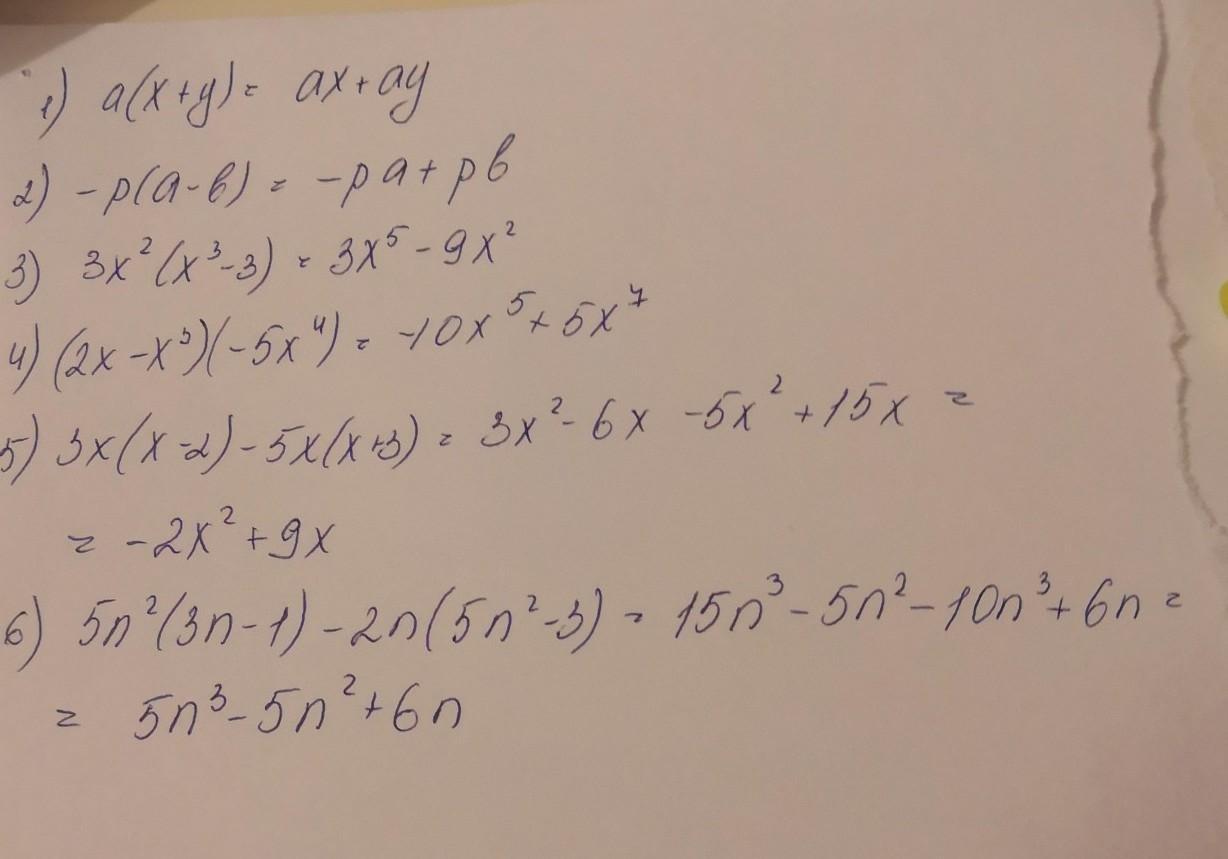 1) a(x+y) = ax+ay
2) -p(a-b) = -pa+pb
3) 3x²(x³-3) = 3x⁵-9x²
4) (2x-x³)(-5x⁴) = -10x⁵+5x⁷
5) 3x(x-2)-5x(x+3) = 3x²-6x-5x²+15x =
= -2x²+9x
6) 5n²(3n-1)-2n(5n²-3) = 15n³-5n²-10n³+6n =
= 5n³-5n²+6n